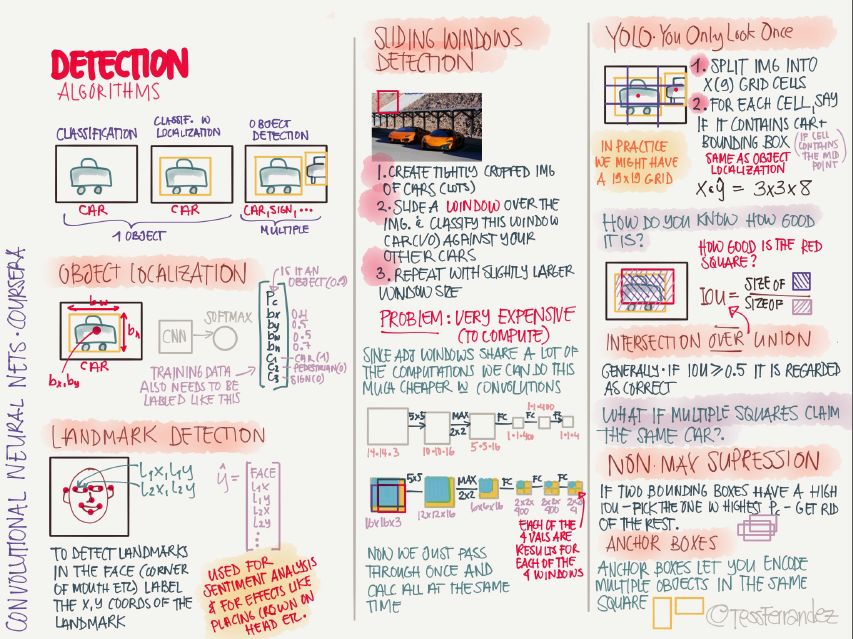 CONVOLUTIONAL NEURAL NETS · COURSERA
DETECTION
ALGORITHMS
CLASSIFICATION
CLASSIF. W
LOCALIZATION
OBJECT
DETECTION
CAR
CAR
CAR, SIGN, ...
1 OBJECT
MULTIPLE
OBJECT LOCALIZATION
bw
bh
bx,by
CAR
CNN
SOFTMAX
IS IT AN
OBJECT (0.1)
Pc
bx 0.4
by 0.5
bw 0.5
bh 0.7
C1 - CAR(1)
C2 - PEDESTRIAN(0)
C3 - SIGN(0)
TRAINING DATA
ALSO NEEDS TO BE
LABLED LIKE THIS
LANDMARK DETECTION
l1x, l1y
l2x, l2y
ŷ =
FACE
l1x
l1y
l2x
l2y
TO DETECT LANDMARKS
IN THE FACE (CORNER
OF MOUTH ETC) LABEL
THE X,Y COORDS OF THE
LANDMARK
USED FOR
SENTIMENT ANALYSIS
& FOR EFFECTS LIKE
PLACING CROWN ON
HEAD ETC.
SLIDING WINDOWS
DETECTION
1. CREATE TIGHTLY CROPPED IMG
OF CARS (LOTS)
2. SLIDE A WINDOW OVER THE
IMG. & CLASSIFY THIS WINDOW
CAR(1/0) AGAINST YOUR
OTHER CARS
3. REPEAT WITH SLIGHTLY LARGER
WINDOW SIZE
PROBLEM: VERY EXPENSIVE
(TO COMPUTE)
SINCE ADJ WINDOWS SHARE A LOT OF
THE COMPUTATIONS WE CAN DO THIS
MUCH CHEAPER W CONVOLUTIONS
14·14·3
5x5
10·10·16
MAX
2x2
5·5·16
FC
1·1·400
FC
1·1·400
FC
1·1·4
16x16x3
5x5
12x12x16
MAX
2x2
6x6x16
FC
2x2x
400
FC
2x2x
400
FC
2x2x
4
EACH OF THE
4 VALS ARE
RESULTS FOR
EACH OF THE
4 WINDOWS
NOW WE JUST PASS
THROUGH ONCE AND
CALC ALL AT THE SAME
TIME
YOLO · You Only Look Once
1. SPLIT IMG INTO
X(9) GRID CELLS
2. FOR EACH CELL, SAY
IF IT CONTAINS CAR+
BOUNDING BOX
(IF CELL
CONTAINS
THE MID
POINT)
IN PRACTICE
WE MIGHT HAVE
A 19x19 GRID
SAME AS OBJECT
LOCALIZATION
X & ŷ = 3x3x8
HOW DO YOU KNOW HOW GOOD
IT IS?
HOW GOOD IS THE RED
SQUARE?
IOU =
SIZE OF
SIZE OF
INTERSECTION OVER UNION
GENERALLY · IF IOU ≥ 0.5 IT IS REGARDED
AS CORRECT
WHAT IF MULTIPLE SQUARES CLAIM
THE SAME CAR?
NON-MAX SUPRESSION
IF TWO BOUNDING BOXES HAVE A HIGH
IOU - PICK THE ONE W HIGHEST Pc - GET RID
OF THE REST.
ANCHOR BOXES
ANCHOR BOXES LET YOU ENCODE
MULTIPLE OBJECTS IN THE SAME
SQUARE
@TessFerrandez